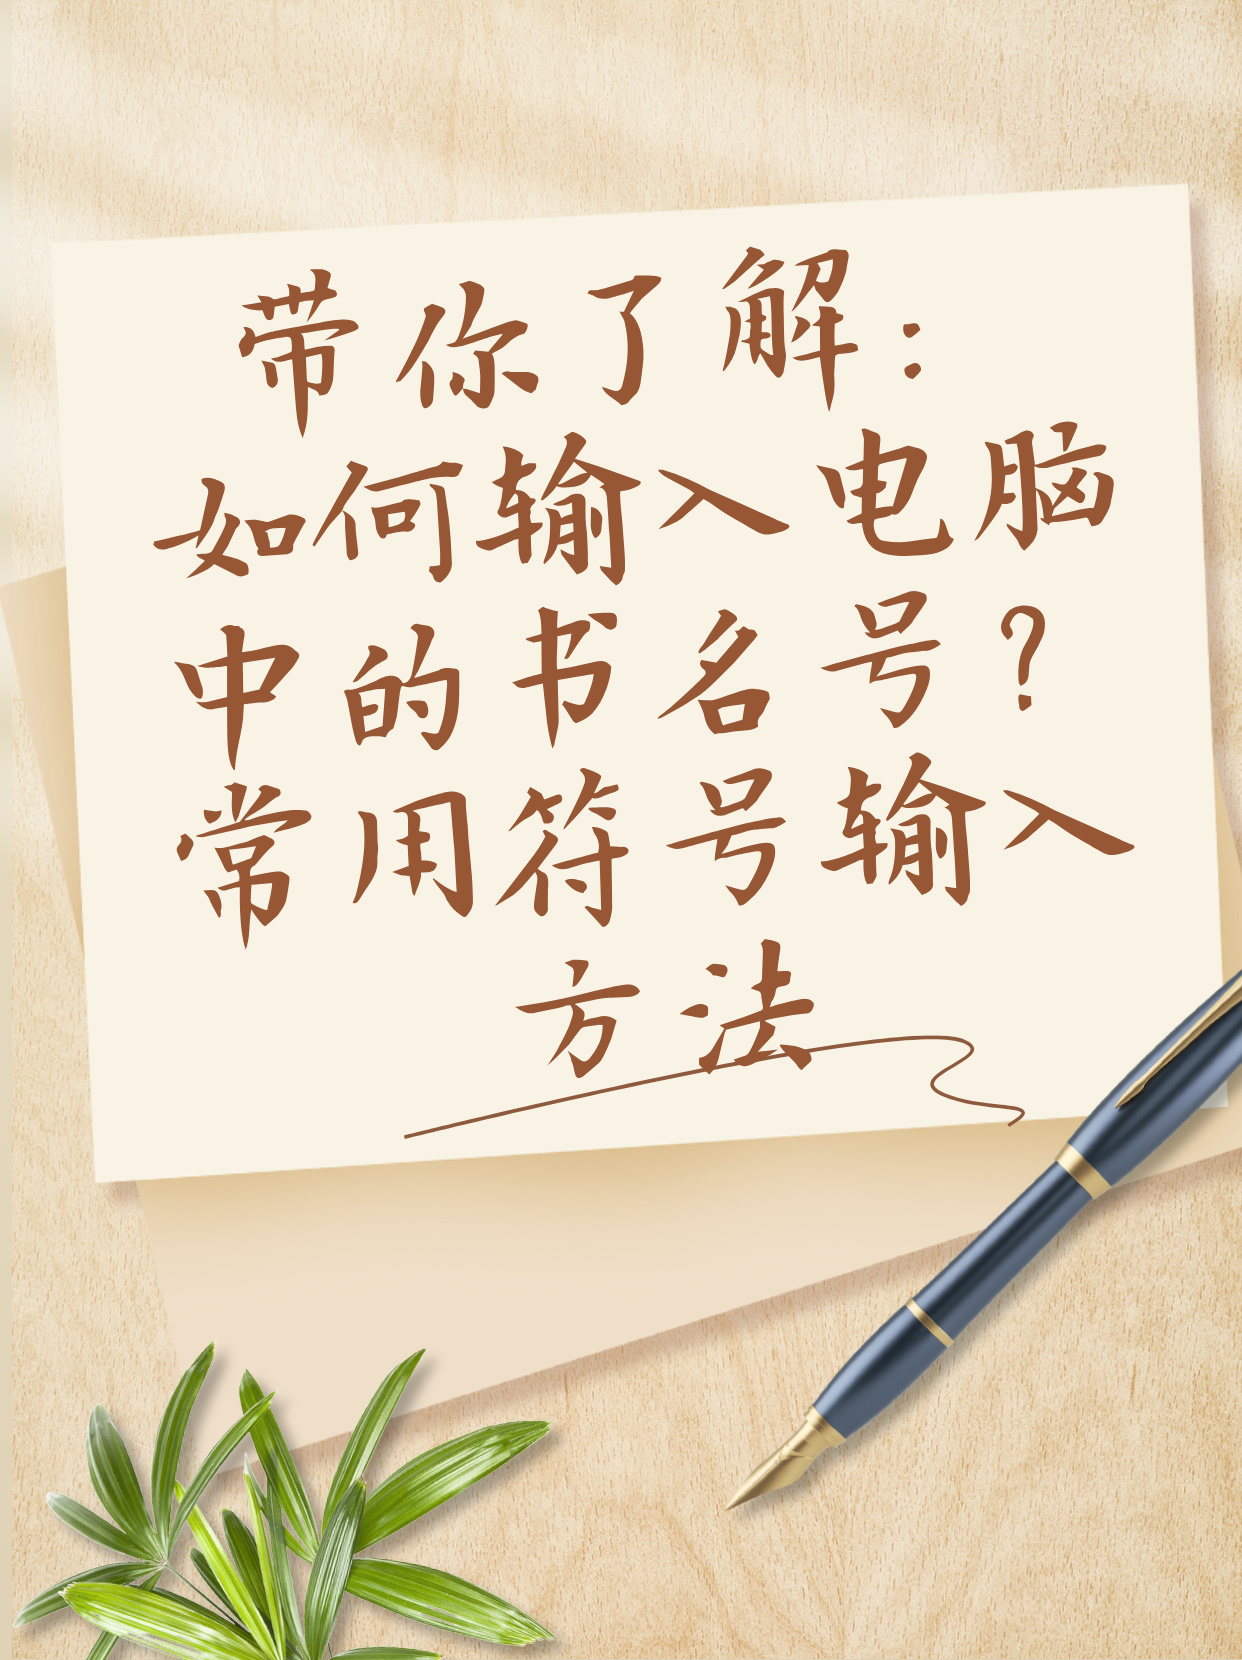 带你了解：
如何输入电脑
中的书名号？
常用符号输入
方法